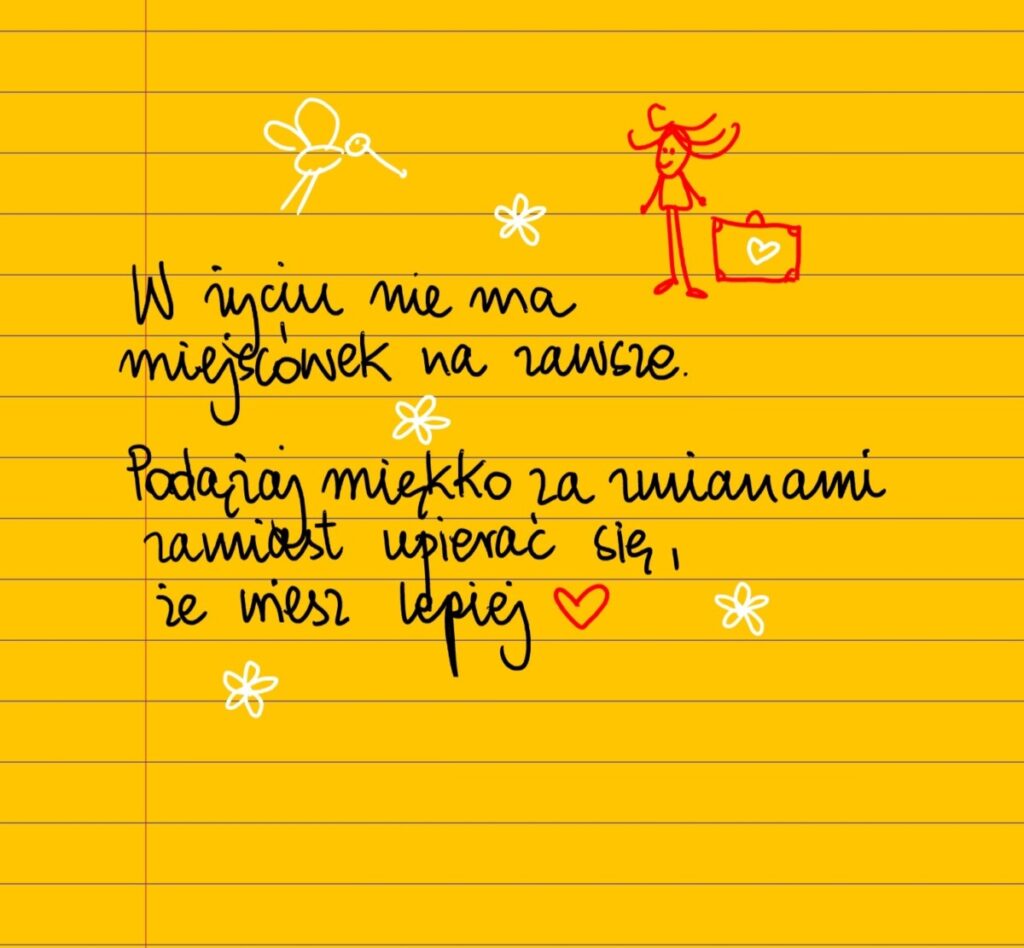 W życiu nie ma
miejscówek na zawsze.
Podążaj miękko za zmianami
zamiast upierać się,
że wiesz lepiej